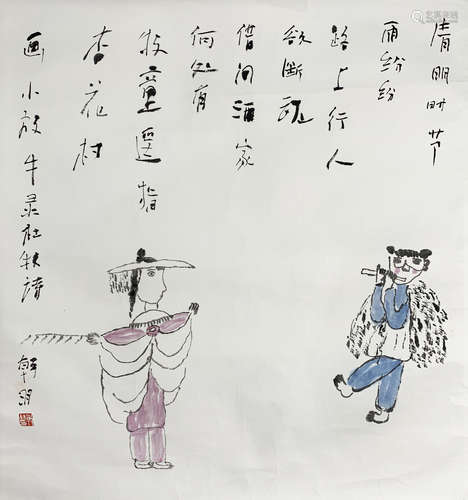 清明时节
雨纷纷
路上行人
欲断魂
借问酒家
何处有
牧童遥指
杏花村
画小放牛录杜牧诗